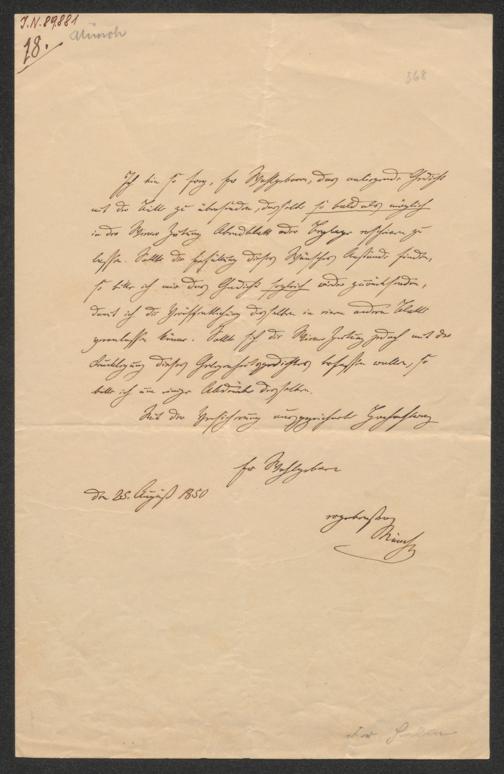 J.N. 89,881
18.
Münch
368
Ich bin so frey, Ew Wohlgeboren, das anliegende Gedicht
mit der Bitte zu übersenden, dasselbe so bald als möglich
in der Wiener Zeitung Abendblatt oder Beylage erscheinen zu
lassen. Sollte die Erfüllung dieses Wunsches Anstände finden,
so bitte ich mir das Gedicht sogleich wieder zurückzusenden,
damit ich die Veröffentlichung desselben in einem andern Blatte
veranlassen könne. Sollte sich die Wiener Zeitung jedoch mit der
dieses Gelegenheitsgedichtes befassen wollen, so
bitte ich um einige Abdrücke desselben.
Mit der Versicherung ausgezeichneter Hochachtung
Ew Wohlgeboren
den 25. August 1850
ergebenster
Münch